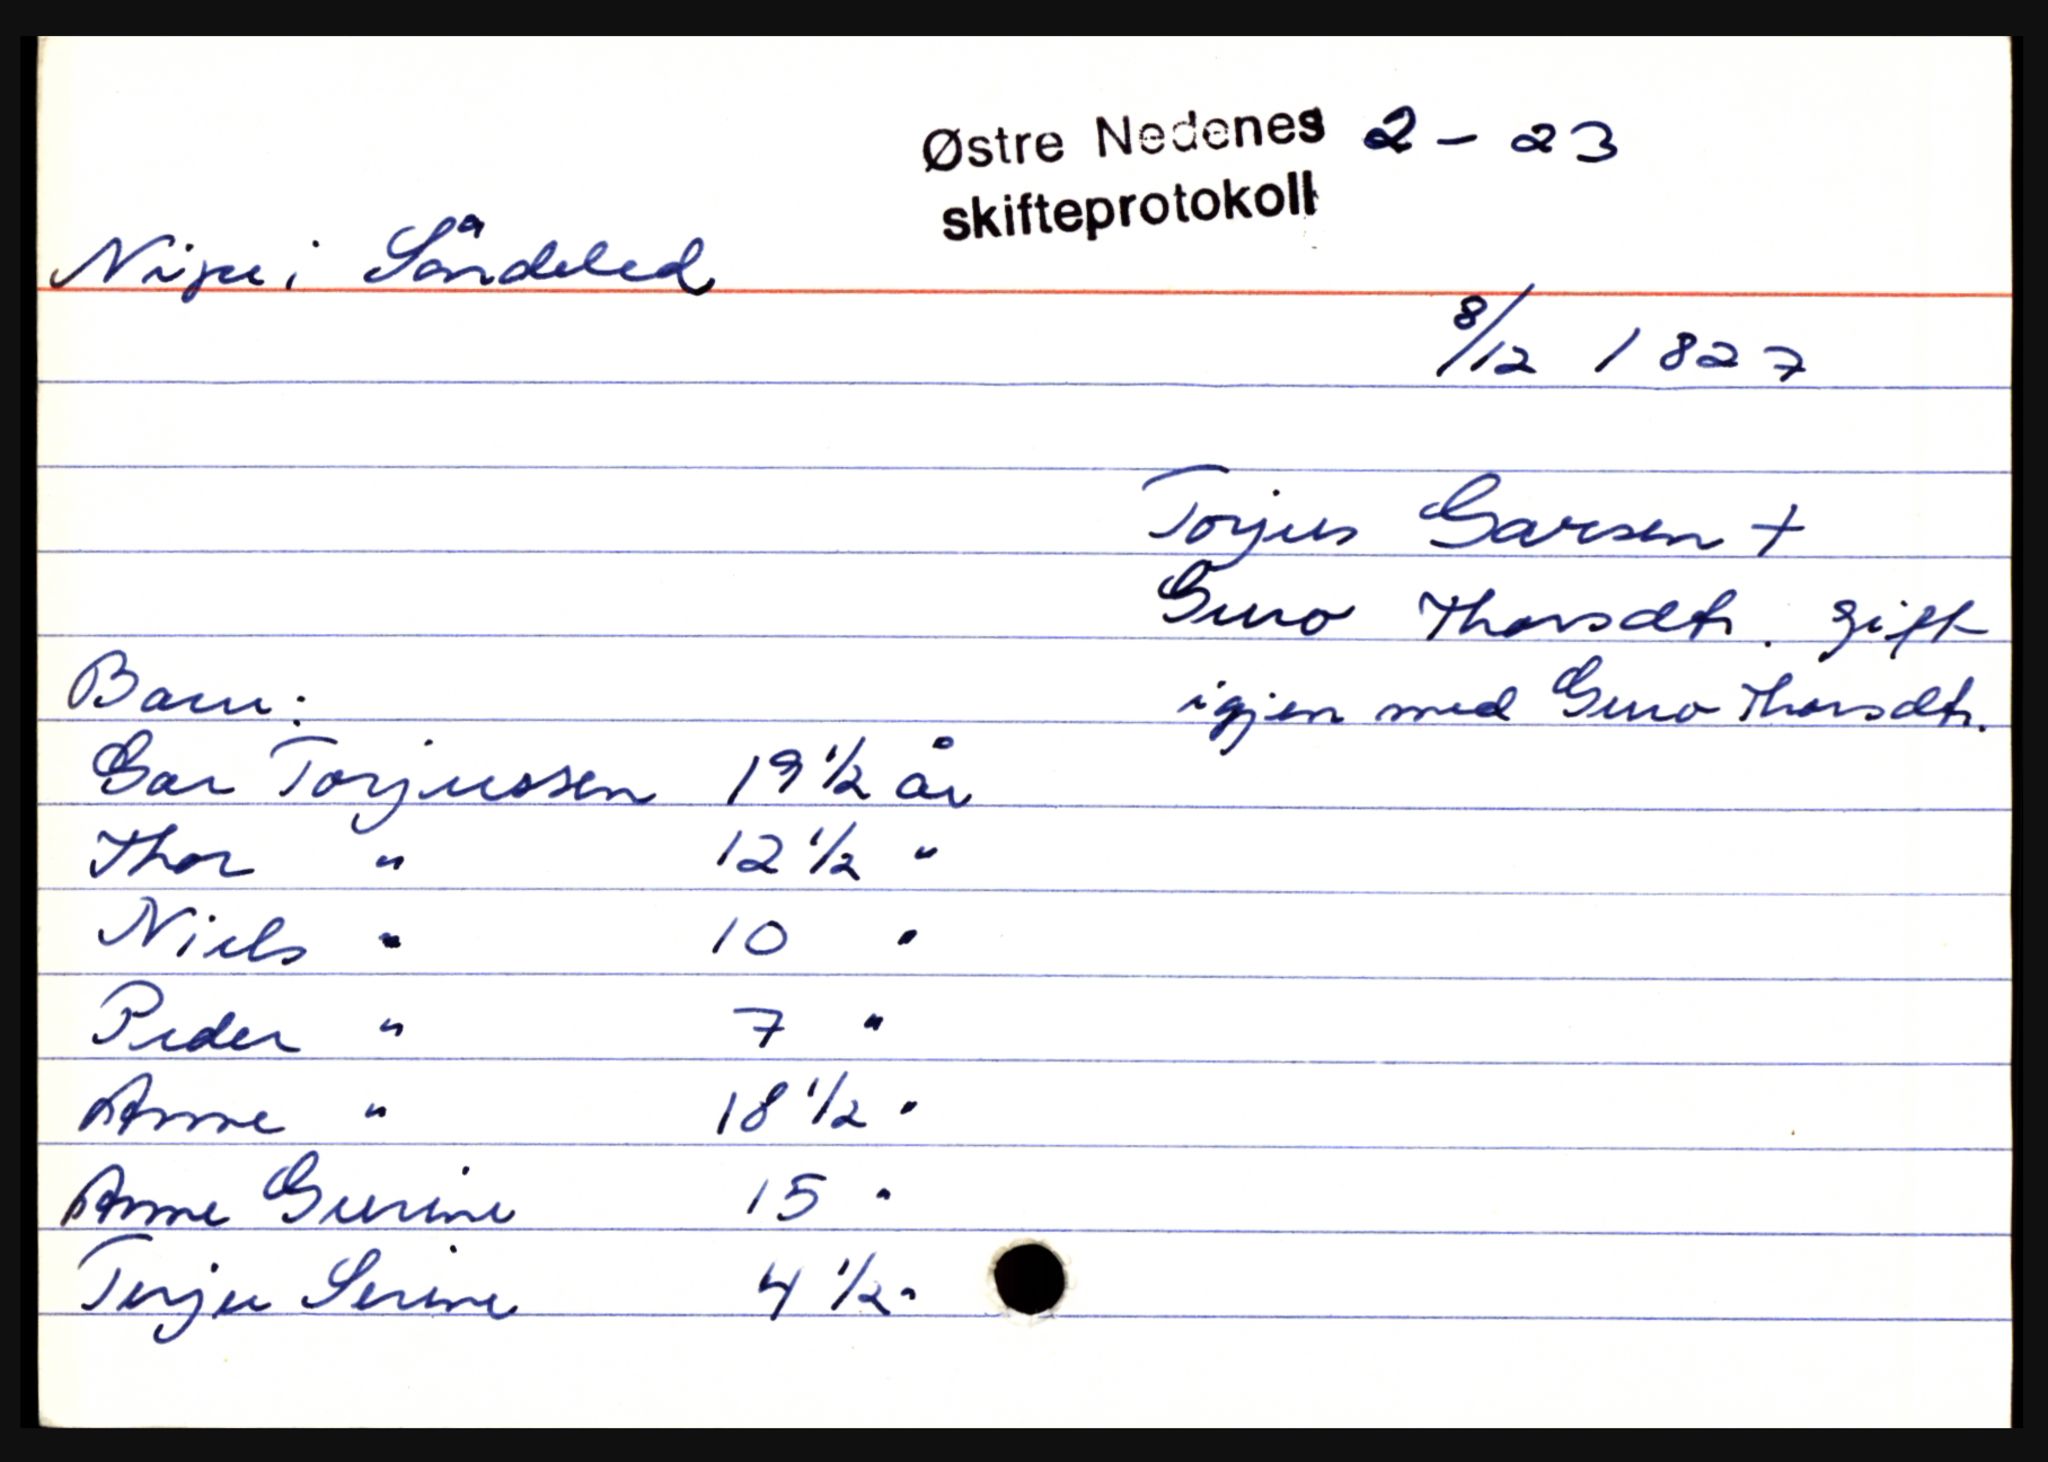 Østre Nedenes 2 - 23
skifteprotokoll
i Söndeled
8/12 1827
Torjus Garsen +
Guro Thorsdtr. gift
igjen med Guro Thorsdtr.
Barn:
Gar Torjussen 19 1/2 år
Thor " 12 1/2 "
Niels " 10 "
Peder " 7 "
Anne " 18 1/2 "
Anne Gurine 15 "
Terje Serine 4 1/2 "